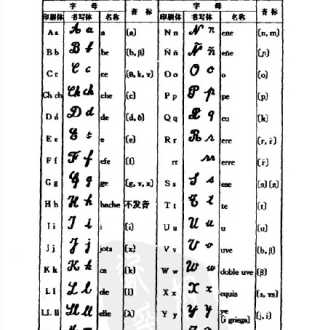 字 母 音 标 字 母 音 标
印刷体 书写体 名称 印刷体 书写体 名称
A a A a a [a] N n N n ene [n, m]
B b B b be [b, β] Ñ ñ Ñ ñ eñe [ɲ]
C c C c ce [θ, k, ɣ] O o O o o [o]
Ch ch Ch ch che [c] P p P p pe [p]
D d D d de [d, δ] Q q Q q cu [k]
E e E e e [e] R r R r ere [r, r̄]
F f F f efe [f] rr rr erre [r̄]
G g G g ge [g, ɣ, x] S s S s ese [s] [z]
H h H h hache 不发音 T t T t te [t]
I i I i i [i] U u U u u [u]
J j J j jota [x] V v V v uve [b, β]
K k K k ca [k] W w W w doble uve [β]
L l L l ele [l] X x X x equis [s, ɣs]
Ll ll Ll ll elle [λ] Y y Y y ye [i griega] [j, i]